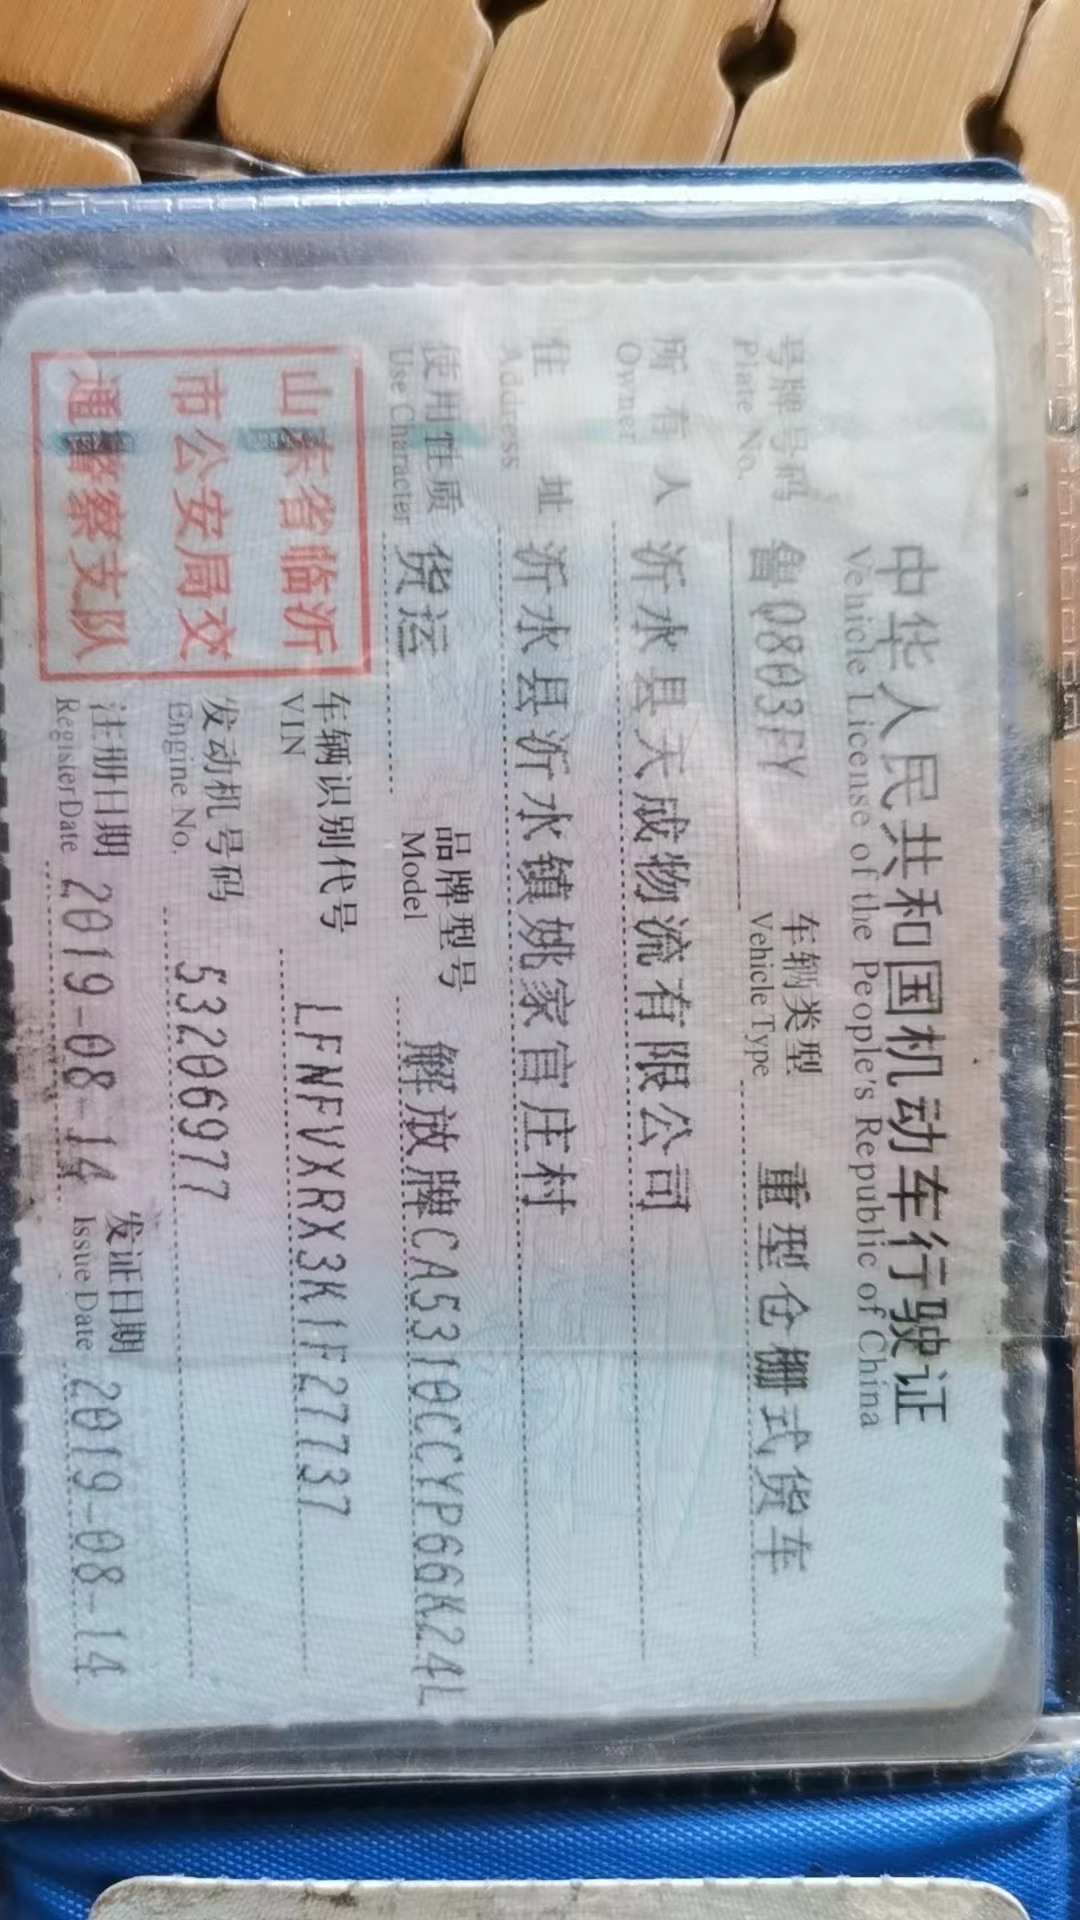 中华人民共和国机动车行驶证
Vehicle License of the People's Republic of China
号牌号码 鲁Q803FY 车辆类型 重型仓栅式货车
Plate No. Vehicle Type
所有人 沂水县天成物流有限公司
Owner
住址 沂水县沂水镇姚家官庄村
Address
使用性质 货运 品牌型号 解放牌CA5310CCYP66K24L
Use Character Model
山东省临沂
市公安局交
通警察支队
车辆识别代号 LFNFVXRX3K1F27737
VIN
发动机号码 53206977
Engine No.
注册日期 2019-08-14 发证日期 2019-08-14
Register Date Issue Date